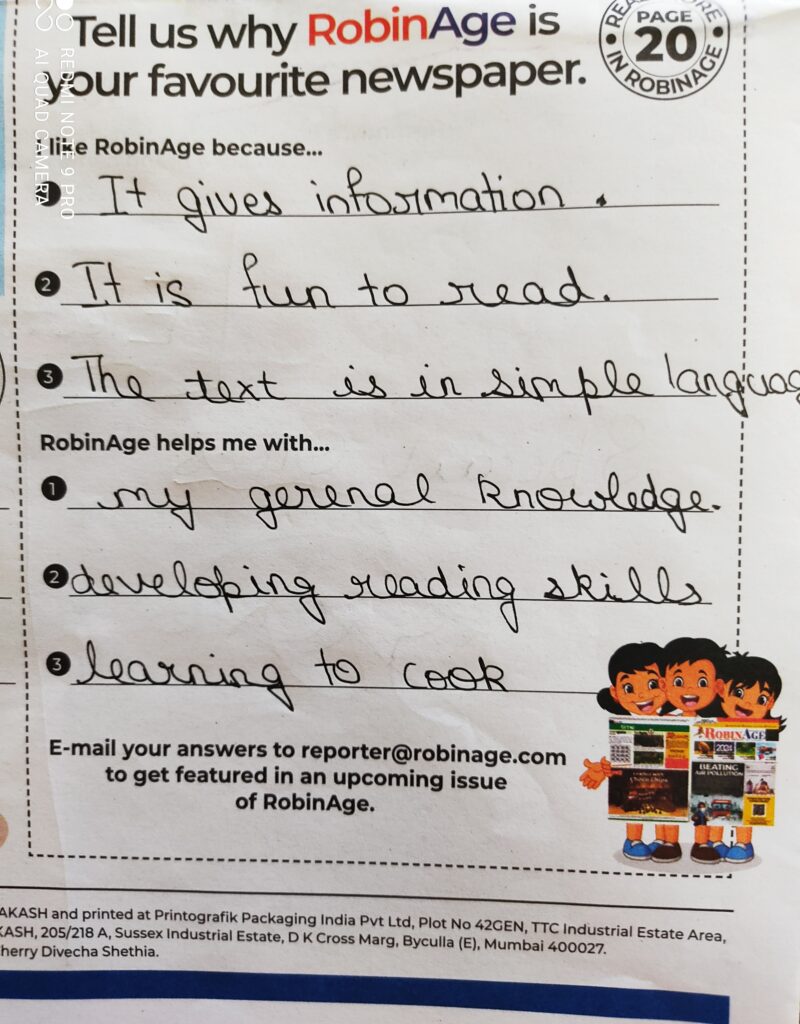 Tell us why RobinAge is
your favourite newspaper.
PAGE
20
IN ROBINAGE
I like RobinAge because...
It gives information.
2 It is fun to read.
3 The text is in simple languag
RobinAge helps me with...
1 my gerenal knowledge.
2 developing reading skills
3 learning to cook
E-mail your answers to reporter@robinage.com
to get featured in an upcoming issue
of RobinAge.
ROBINAGE
2024
BEATING
AIR POLLUTION
AKASH and printed at Printografik Packaging India Pvt Ltd, Plot No 42GEN, TTC Industrial Estate Area,
KASH, 205/218 A, Sussex Industrial Estate, D K Cross Marg, Byculla (E), Mumbai 400027.
herry Divecha Shethia.
REDMI NOTE 9 PRO
AI QUAD CAMERA